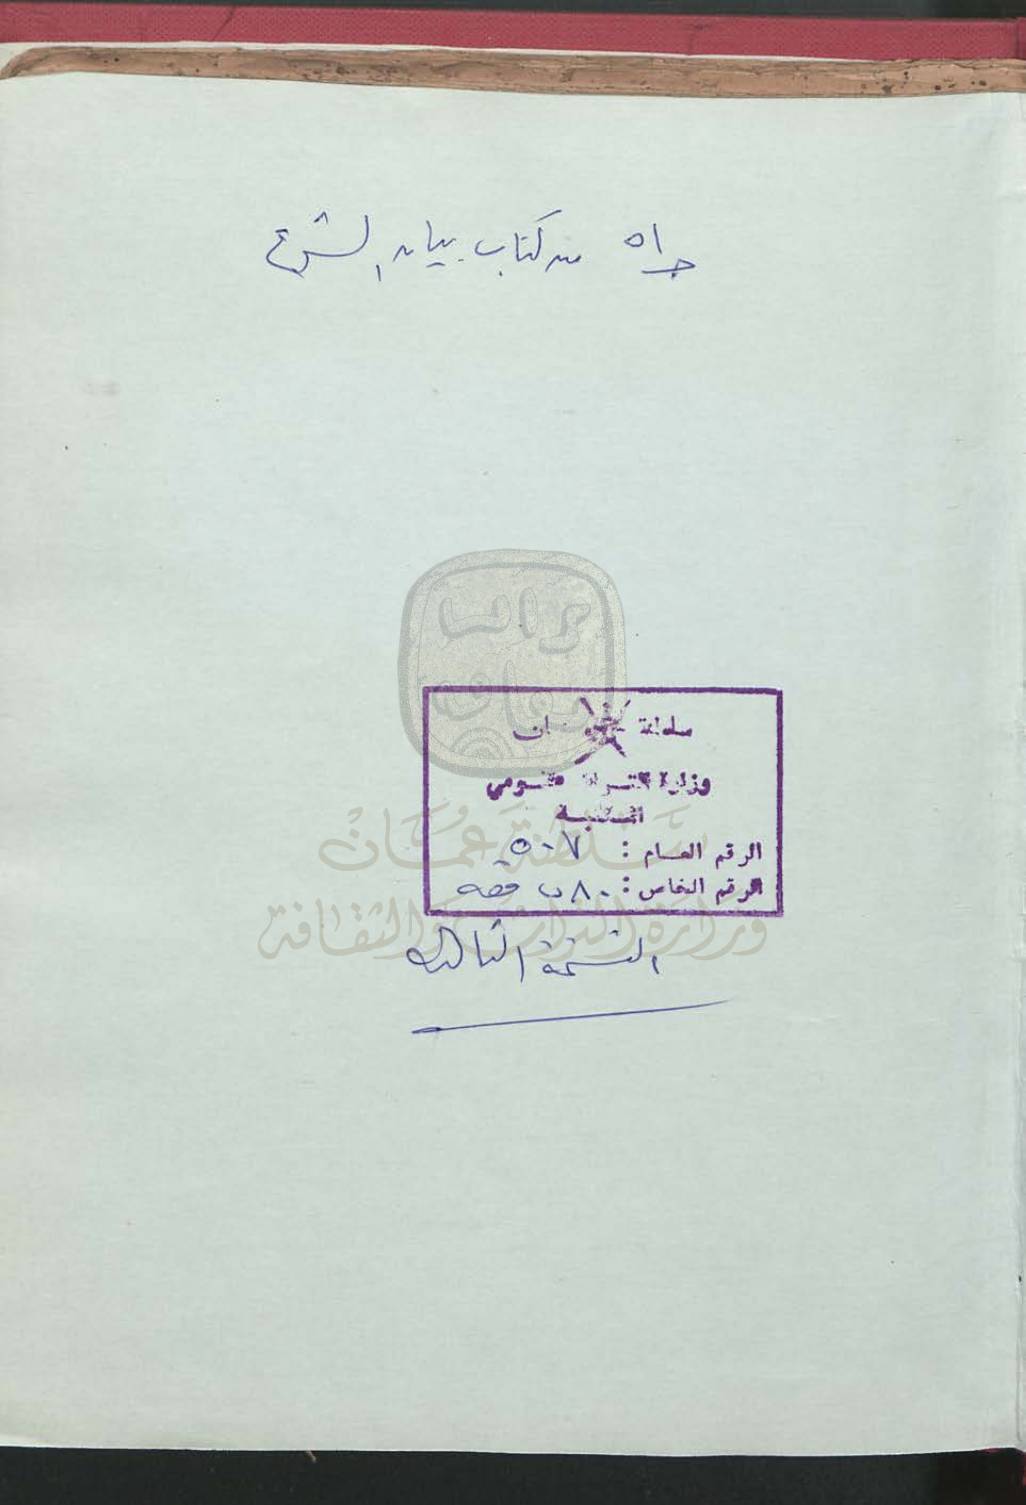 جـ٥١ من كتاب بيان الشرع
سلطنة عمان
وزارة التراث القومي
المكتبة
الرقم العام : ٥٠٧
الرقم الخاص : ٨٠ ب فقه
النسخة الثالثة
سلطنة عمان
وزارة التراث والثقافة